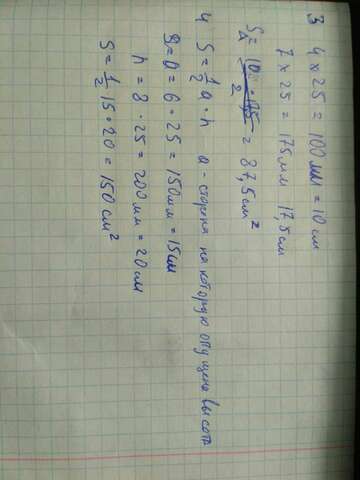 3 4 x 25 = 100 мм = 10 см
7 x 25 = 175 мм 17,5 см
S△ = 10 · 17,5 / 2 = 87,5 см²
4 S = 1/2 a · h a - сторона на которую опущена высота
a = 6 · 25 = 150 мм = 15 см
h = 8 · 25 = 200 мм = 20 см
S = 1/2 · 15 · 20 = 150 см²